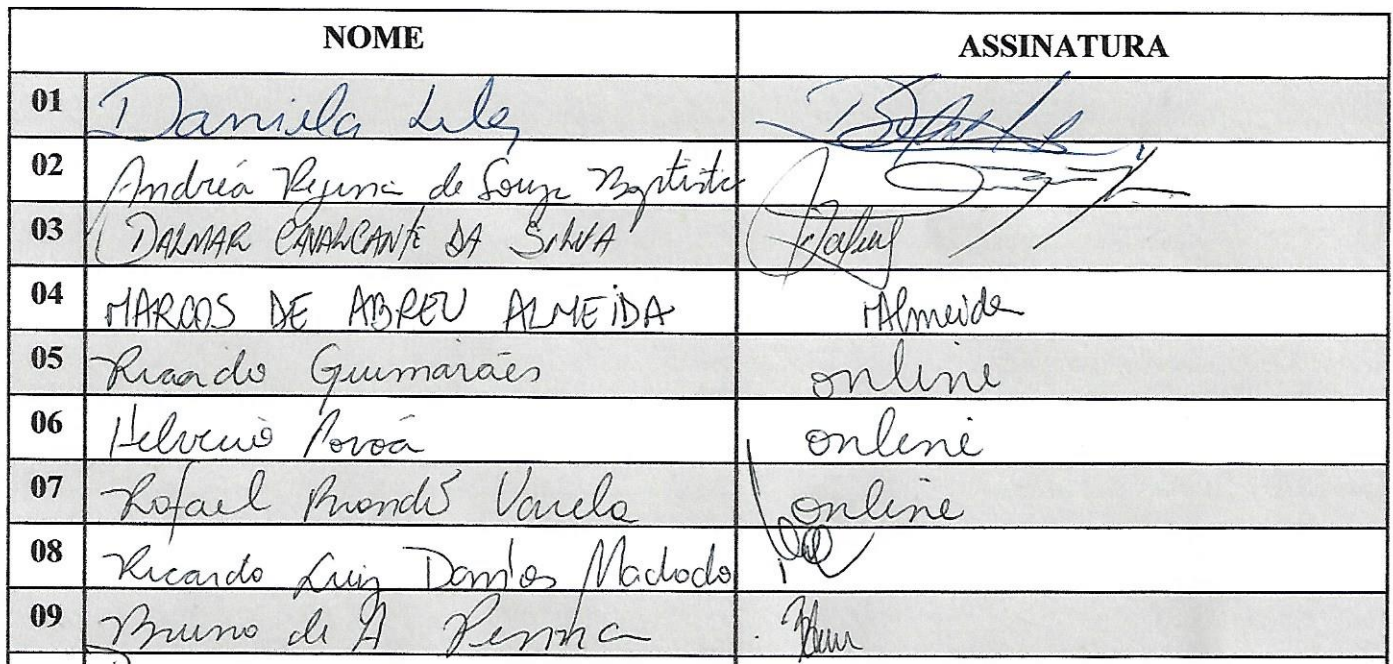 NOME ASSINATURA
01 Daniela
02 Andréa Regina de Souza Baptista
03 DALMAR CAVALCANTE DA SILVA
04 MARCOS DE ABREU ALMEIDA MAlmeida
05 Ricardo Guimarães online
06 Helvécio Povoa online
07 Rafael Varela online
08 Ricardo Luiz Machado
09 Bruno de A